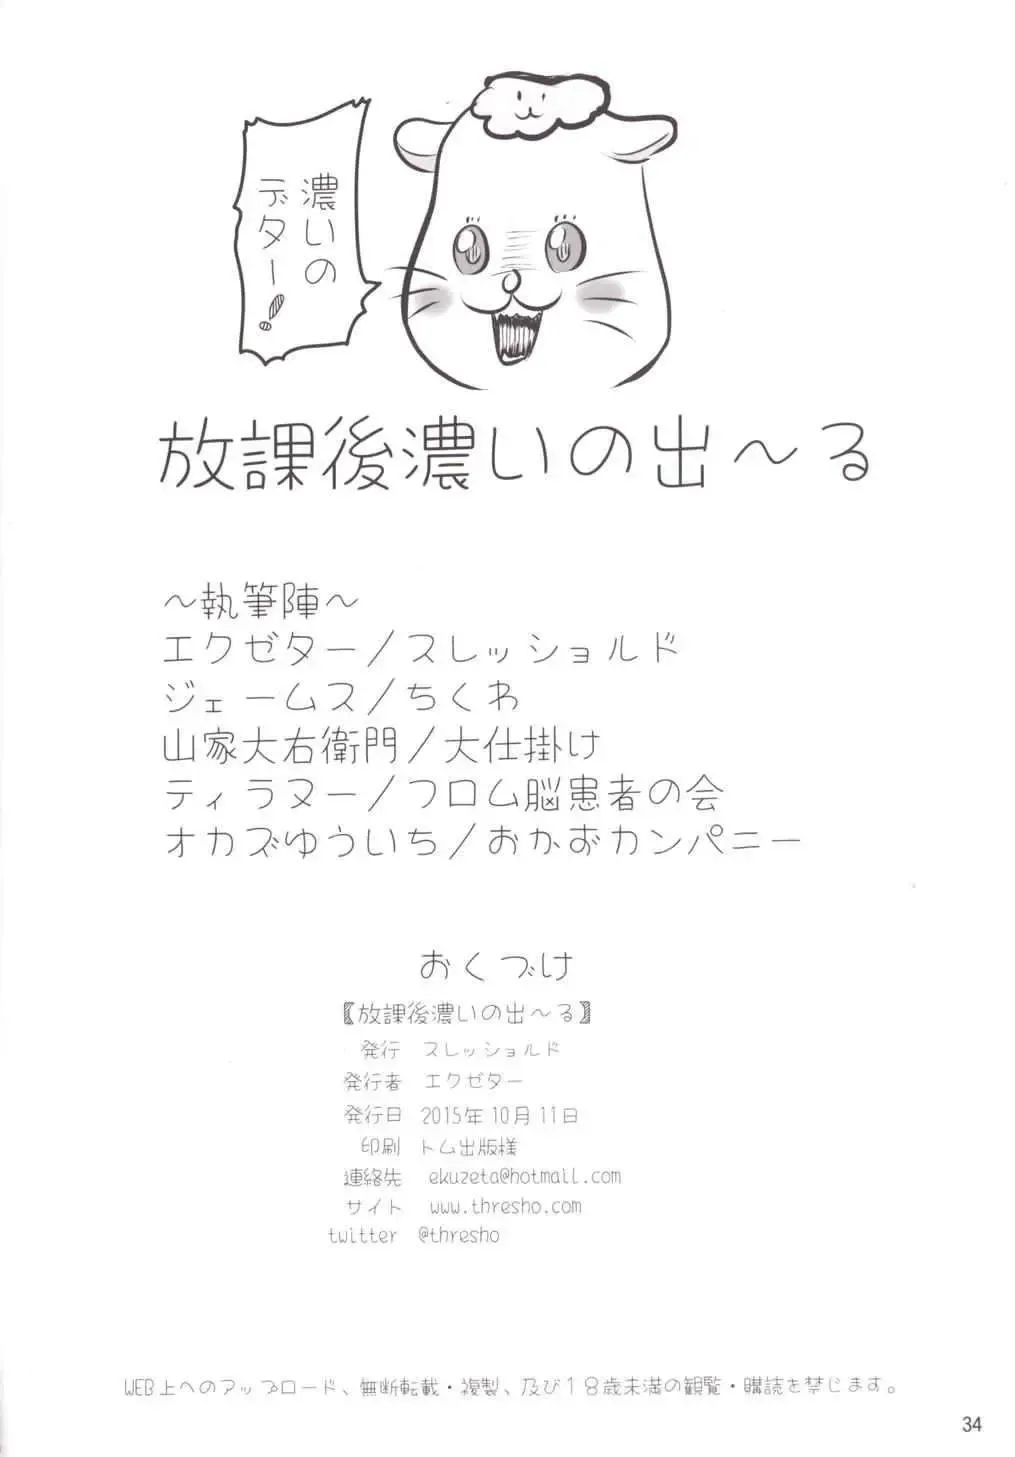 濃いの
デター！
放課後濃いの出～る
～執筆陣～
エクゼター／スレッショルド
ジェームス／ちくわ
山家大右衛門／大仕掛け
ティラヌー／フロム脳患者の会
オカズゆういち／おかずカンパニー
おくづけ
〖放課後濃いの出～る〗
発行 スレッショルド
発行者 エクゼター
発行日 2015年10月11日
印刷 トム出版様
連絡先 ekuzeta@hotmail.com
サイト www.thresho.com
twitter @thresho
WEB上へのアップロード、無断転載・複製、及び18歳未満の観覧・購読を禁じます。
34